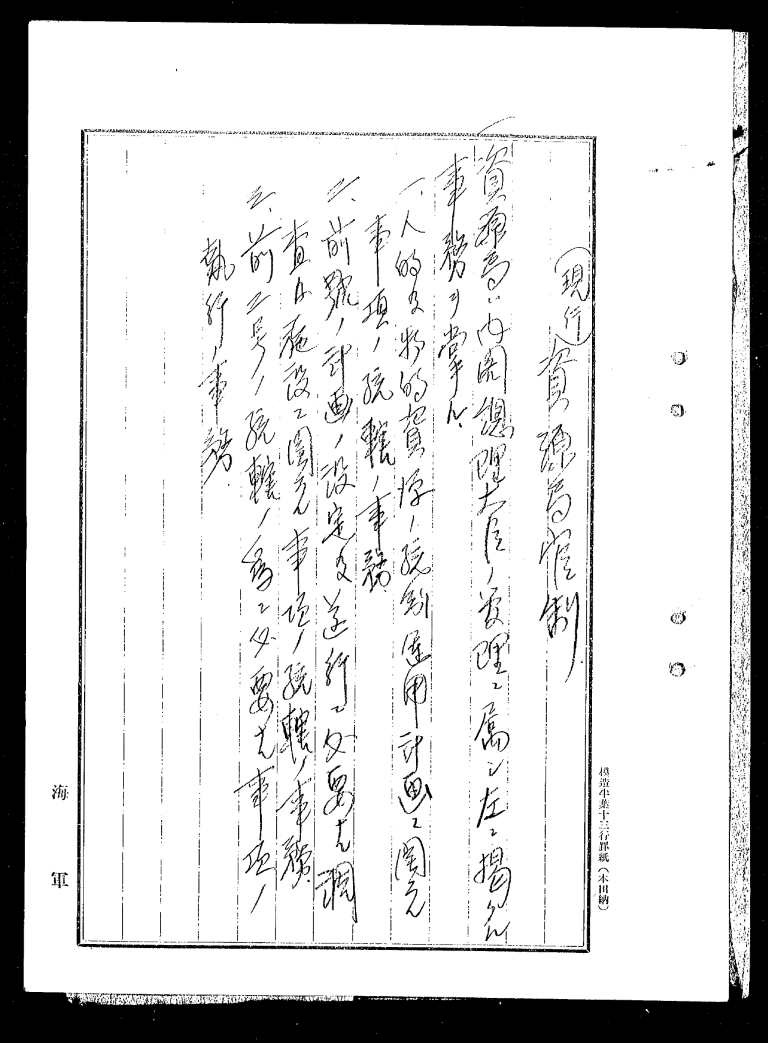 (現行)資源局官制
資源局ハ内閣總理大臣ノ管理ニ属シ左ニ掲クル
事務ヲ掌ル
一、人的及物的資源ノ統制運用計画ニ関スル
事項ノ統轄ノ事務
二、前號ノ計画ノ設定及遂行ニ必要ナル調
査及施設ニ関スル事項ノ統轄ノ事務
三、前二号ノ統轄ノ為ニ必要ナル事項ノ
執行ノ事務
模造半葉十三行罫紙(本田納)
海軍